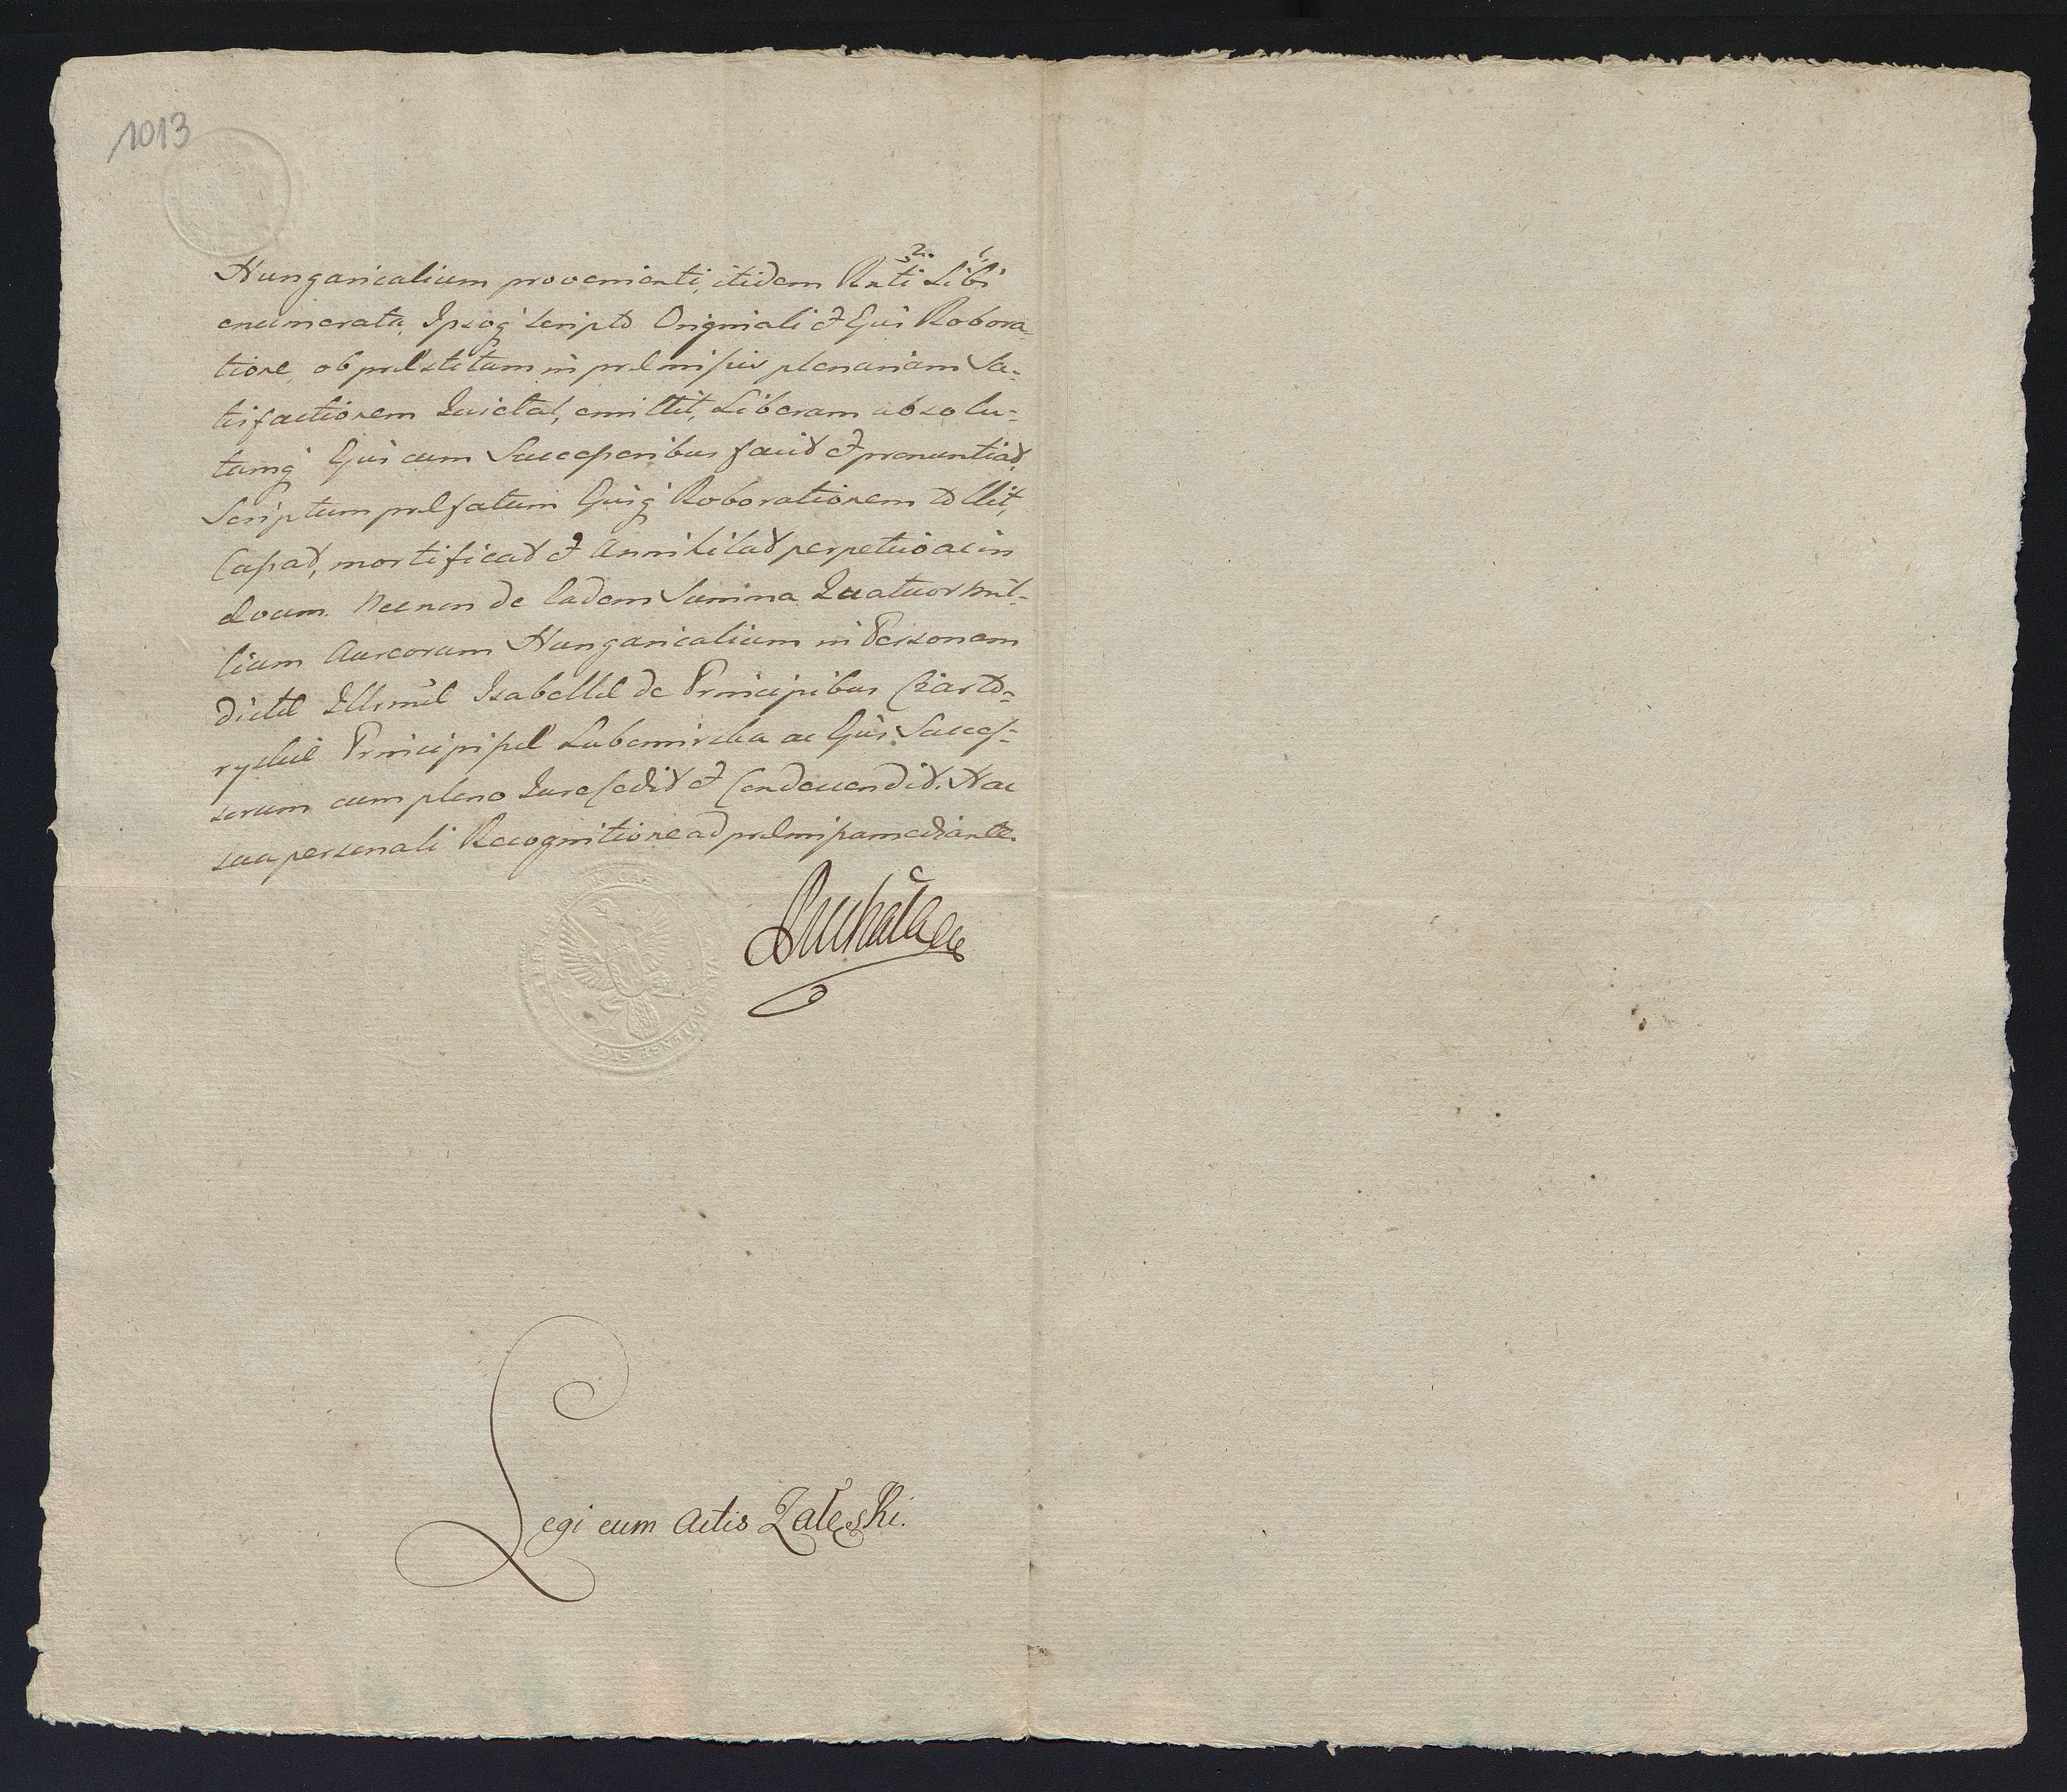 1013
Hungaricalium provenienti, itidem Rnti Sibi
enumerata, Ipsoq́ scripto Originali et Ejus Robora-
tione, ob præstitam in præmissis plenariam Sa-
tisfactionem Quietat, emittit, Liberam absolu-
tamq́ Ejus cum Successoribus facit et pronuntiat,
Scriptum præfatum Ejusq́ Roborationem tollit,
Cassat, mortificat et Annihilat perpetuo ac in
ævum. Necnon de Eadem Summa Quatuor Mil-
lium Aureorum Hungaricalium in Personam
dictæ Illsmæ Isabellæ de Principibus Czarto-
ryskie Principissæ Lubomirska ac Ejus Succes-
sorum cum pleno Jure Cedit et Condescendit. Hac
sua personali Recognitione ad præmissa mediante.
Legi cum Actis Zaleski.